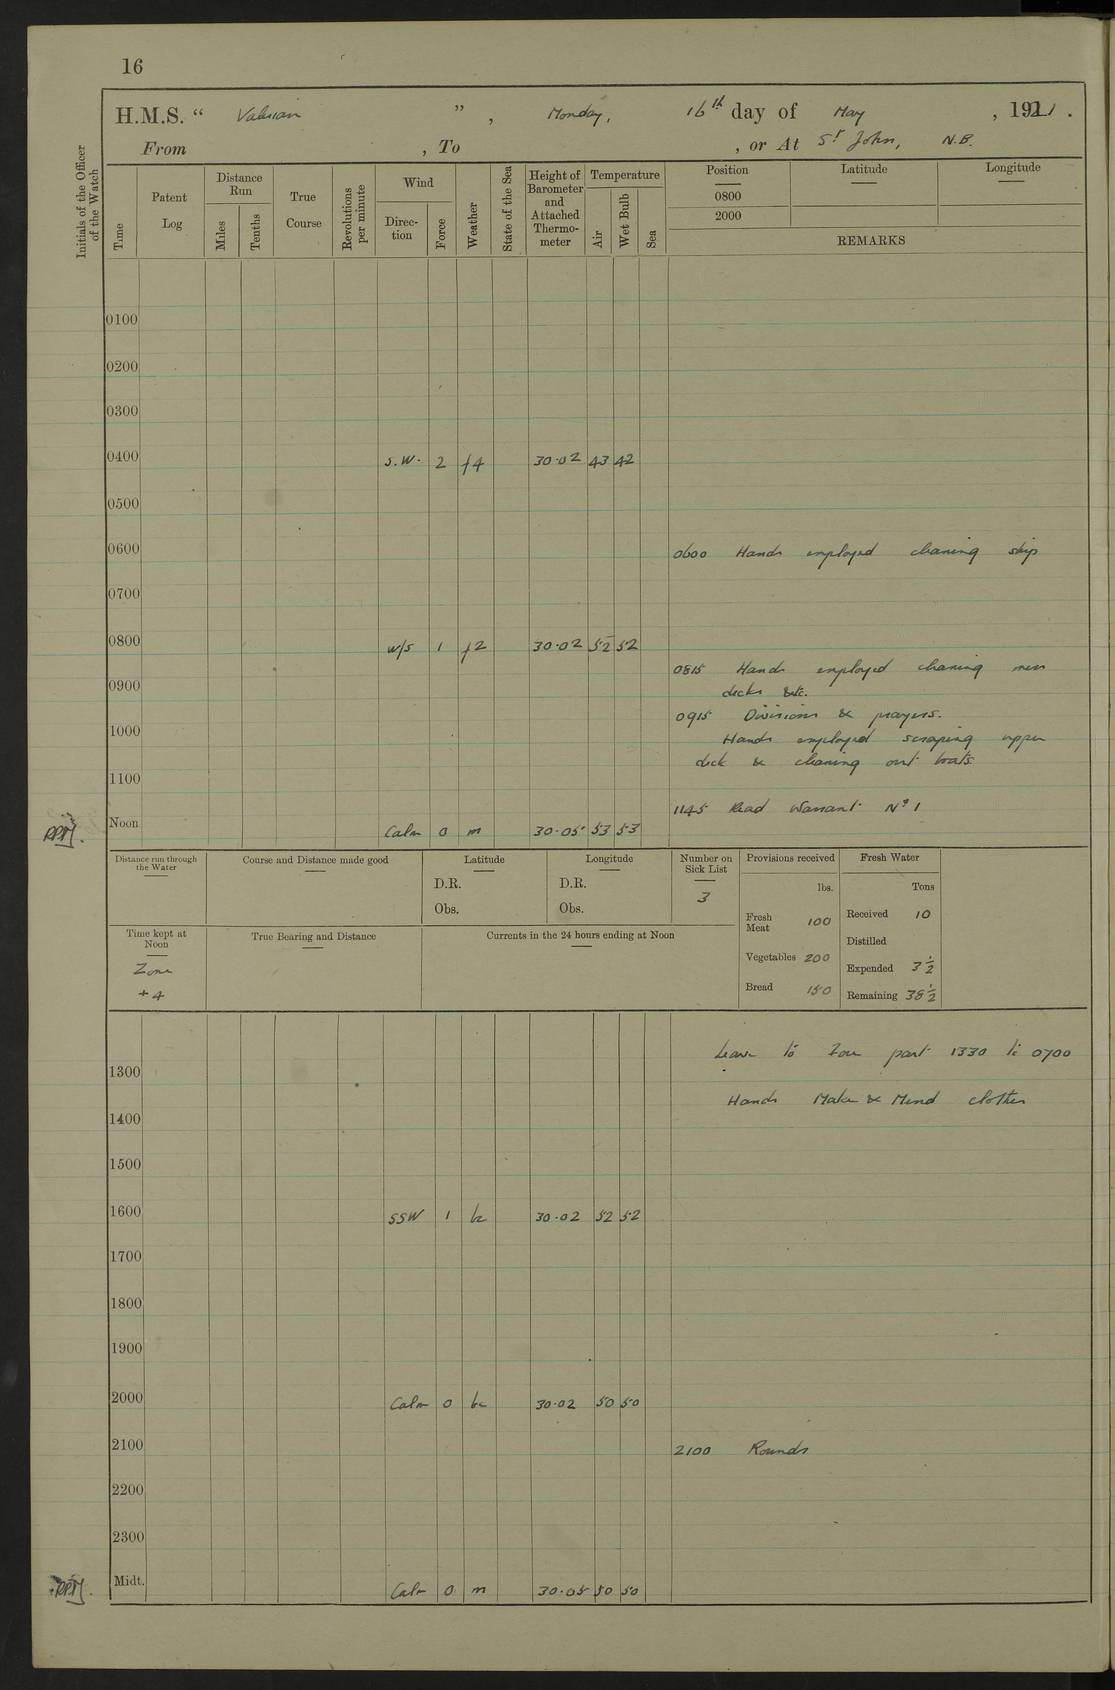 16
H.M.S. “ Valerian ”, Monday, 16th day of May, 1921.
From , To , or At St John, N.B.
Initials of the Officer of the Watch
Time
Patent Log
Distance Run
Miles
Tenths
True Course
Revolutions per minute
Wind
Direction
Force
Weather
State of the Sea
Height of Barometer and Attached Thermometer
Temperature
Air
Wet Bulb
Sea
Position
0800
2000
Latitude
Longitude
REMARKS
0100
0200
0300
0400 S.W. 2 f4 30.02 43 42
0500
0600 0600 Hands employed cleaning ship
0700
0800 W/S 1 f2 30.02 52 52
0815 Hands employed cleaning mess
0900 decks &c.
0915 Divisions & prayers.
1000 Hands employed scraping upper
deck & cleaning out boats
1100
1145 Read Warrant No 1
Noon Calm 0 m 30.05 53 53
Distance run through the Water
Course and Distance made good
Latitude
D.R.
Obs.
Longitude
D.R.
Obs.
Number on Sick List
3
Provisions received
lbs.
Fresh Meat 100
Vegetables 200
Bread 150
Fresh Water
Tons
Received 10
Distilled
Expended 3½
Remaining 38½
Time kept at Noon
Zone
+4
True Bearing and Distance
Currents in the 24 hours ending at Noon
Leave to part 1330 to 0700
1300
Hands Make & Mend clothes
1400
1500
1600 SSW 1 bc 30.02 52 52
1700
1800
1900
2000 Calm 0 bc 30.02 50 50
2100 2100 Rounds
2200
2300
Midt. Calm 0 m 30.05 50 50